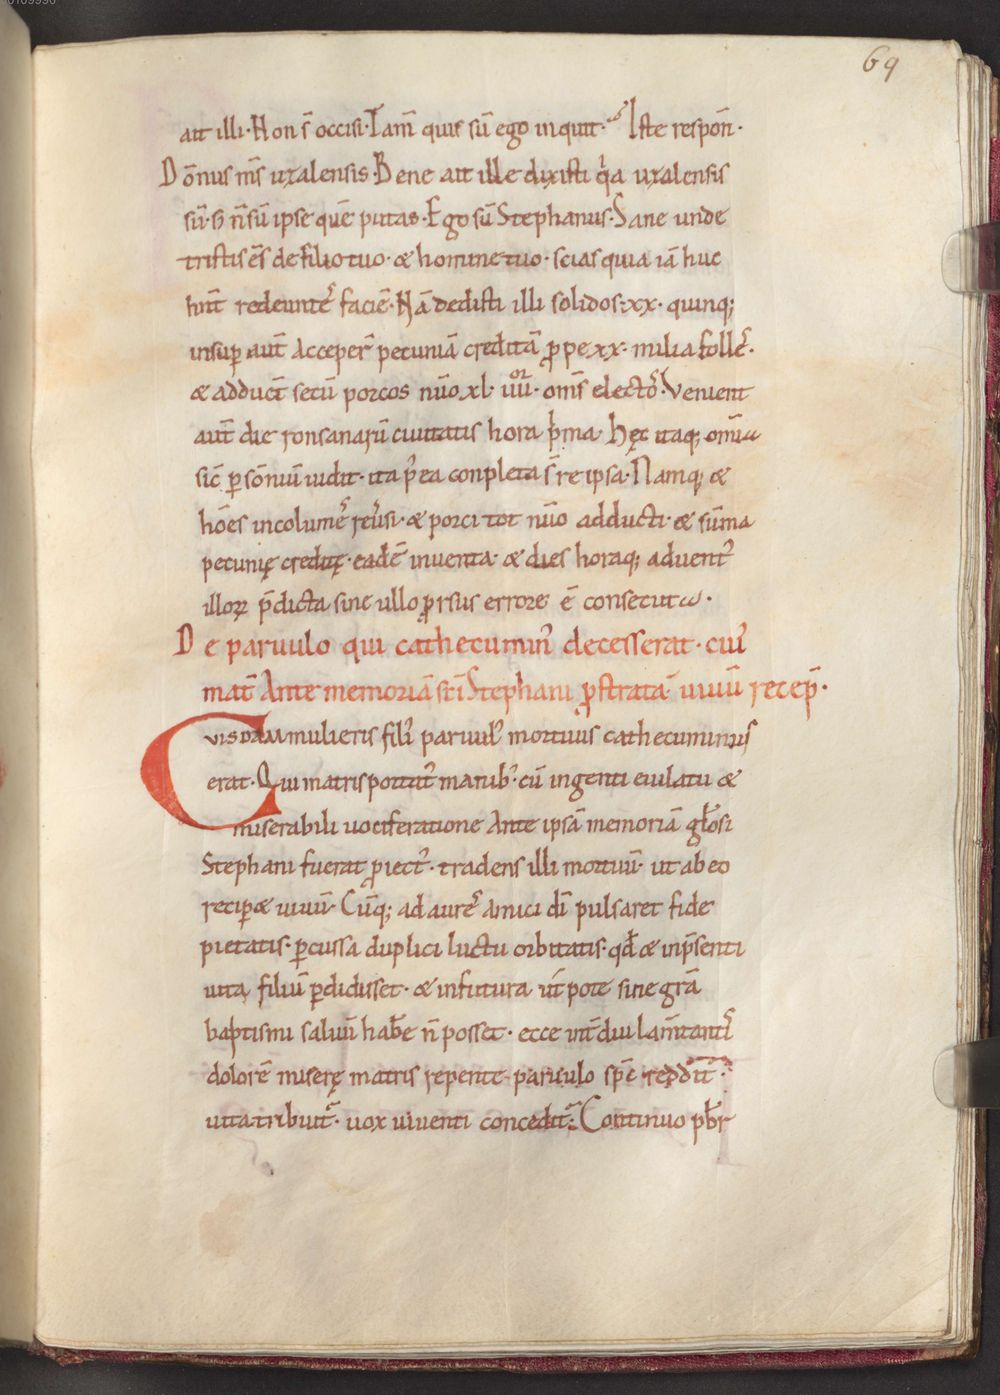 69
ait illi· Non s̄ occisi· Tam̄ quis sū ego inquit· Iste respon̄·
Dōnus m̄s uzalensis· Bene ait ille dixisti q̓a uzalensis
sū· s; n̄ sū ipse quē putas· Ego sū Stephanus· Sane unde
tristis ēs de filio tuo· & homine tuo· scias quia iā huc
hn̄t redeuntēs faciē· Nā dedisti illi solidos· xx· quinq;
insup̱ aut̄ acceper̄ pecuniā creditā ꝓpe xx· milia follē·
& adduct̄ secū porcos nūo xl· iiii᷒ʳ· om̄s electos̄· Venient
aut̄ die ronsanarū ciuitatis hora p̓ma· Hęc itaq; om̄ia
sic̄ p̱ sōmniū uidit· ita p̄ ea conpleta s̄ re ipsa· Namq; &
hōes incolumes̄ reūsi· & porci tot nūo adducti· & sūma
pecunię credite̜· eadē inuenta· & dies horaq; aduent᷒
illoꝝ p̄dicta sine ullo ꝓrsus errore ē consecuta·
De paruulo qui cathecumin᷒ decesserat· cui᷒
mat̄ ante memoriā sc̄i Stephani ꝓstrata· uiuū recep̄·
Cuisdam mulieris fili᷒ paruul᷒ mortuus cathecuminus
erat· Qui matris portat᷒ manib᷒· cū ingenti eiulatu &
miserabili uociferatione ante ipsā memoriā gl̄osi
Stephani fuerat ꝓiect᷒· tradens illi mortuū· ut ab eo
recip̱& uiuū· Cūq; ad aurē amici dī pulsaret fide
pietatis· p̱cussa duplici luctu orbitatis· qd̄ & inp̄senti
uita filiū p̱didisset· & in futura ut̄pote sine grā
baptismi saluū hab̄e n̄ posset· ecce int̄ diu lam̄tantis̄
dolorē miserę matris repente paruulo sp̄c reddit᷒·
uita tribuit᷒· uox uiuenti concedit᷒· Continuo pb̄r